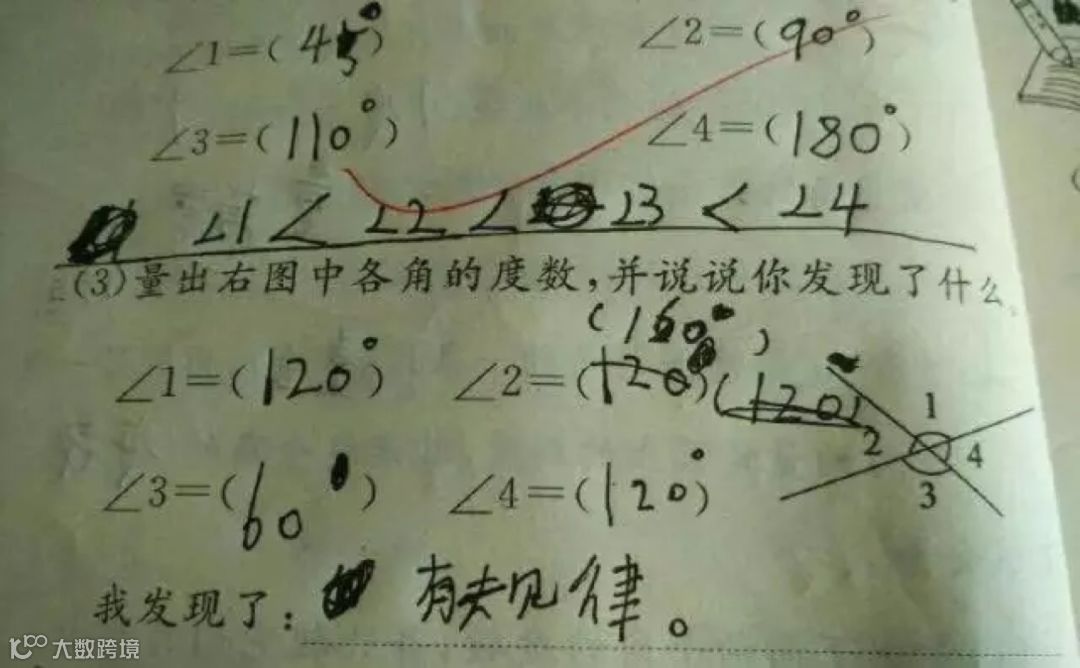 ∠1=(45°) ∠2=(90°)
∠3=(110°) ∠4=(180°)
∠1<∠2<∠3<∠4
(3)量出右图中各角的度数,并说说你发现了什么。
(160°)
∠1=(120°) ∠2=(120°)(120)
∠3=(60°) ∠4=(120°)
1
2 4
3
我发现了: 有夫见律。
大数跨境